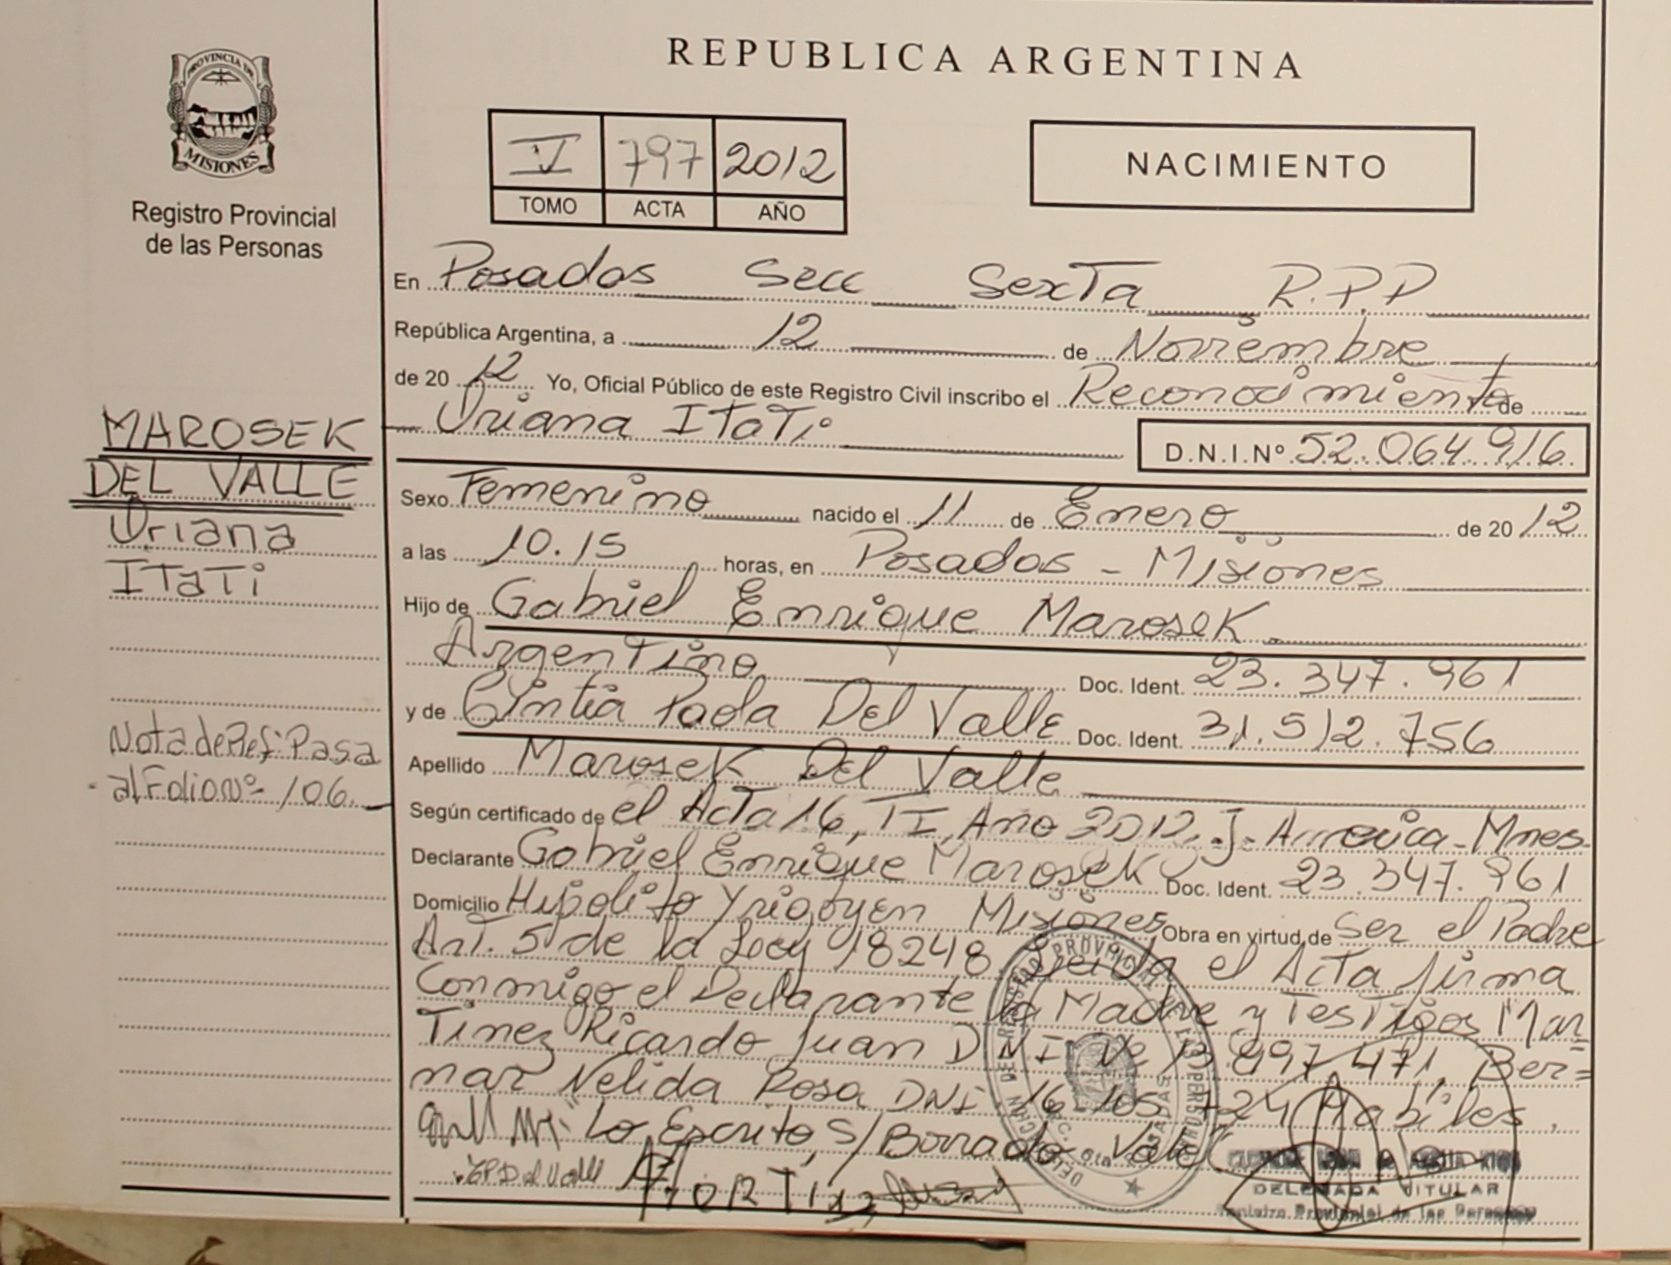 PROVINCIA DE
MISIONES
Registro Provincial
de las Personas
MAROSEK
DEL VALLE
Oriana
ITaTi
Nota de Ref: Pasa
al Folio Nº 106.
REPUBLICA ARGENTINA
V 797 2012
TOMO ACTA AÑO
NACIMIENTO
En Posadas Secc Sexta R.P.P
República Argentina, a 12 de Noviembre
de 20 12 Yo, Oficial Público de este Registro Civil inscribo el Reconocimiento de
Oriana ITaTi
D.N.I.Nº 52.064.916
Sexo Femenino nacido el 11 de Enero de 20 12
a las 10.15 horas, en Posadas - Misiones
Hijo de Gabriel Enrique Marosek
Argentino Doc. Ident. 23.347.961
y de Cintia Paola Del Valle Doc. Ident. 31.512.756
Apellido Marosek Del Valle
Según certificado de el Acta 16, TI, Año 2012, J. America - Mnes.
Declarante Gabriel Enrique Marosek Doc. Ident. 23.347.961
Domicilio Hipolito Yrigoyen Misiones Obra en virtud de Ser el Padre
Art. 5 de la Ley 18248 Leida el Acta firma
Conmigo el Declarante la Madre y Testigos Mar=
Tinez Ricardo Juan DNI Nº 13.897.471, Ber=
nar Nelida Rosa DNI 16.105.724 Habiles.
Lo Escrito S/Borrado Vale
DELEGADA TITULAR
Registro Provincial de las Personas